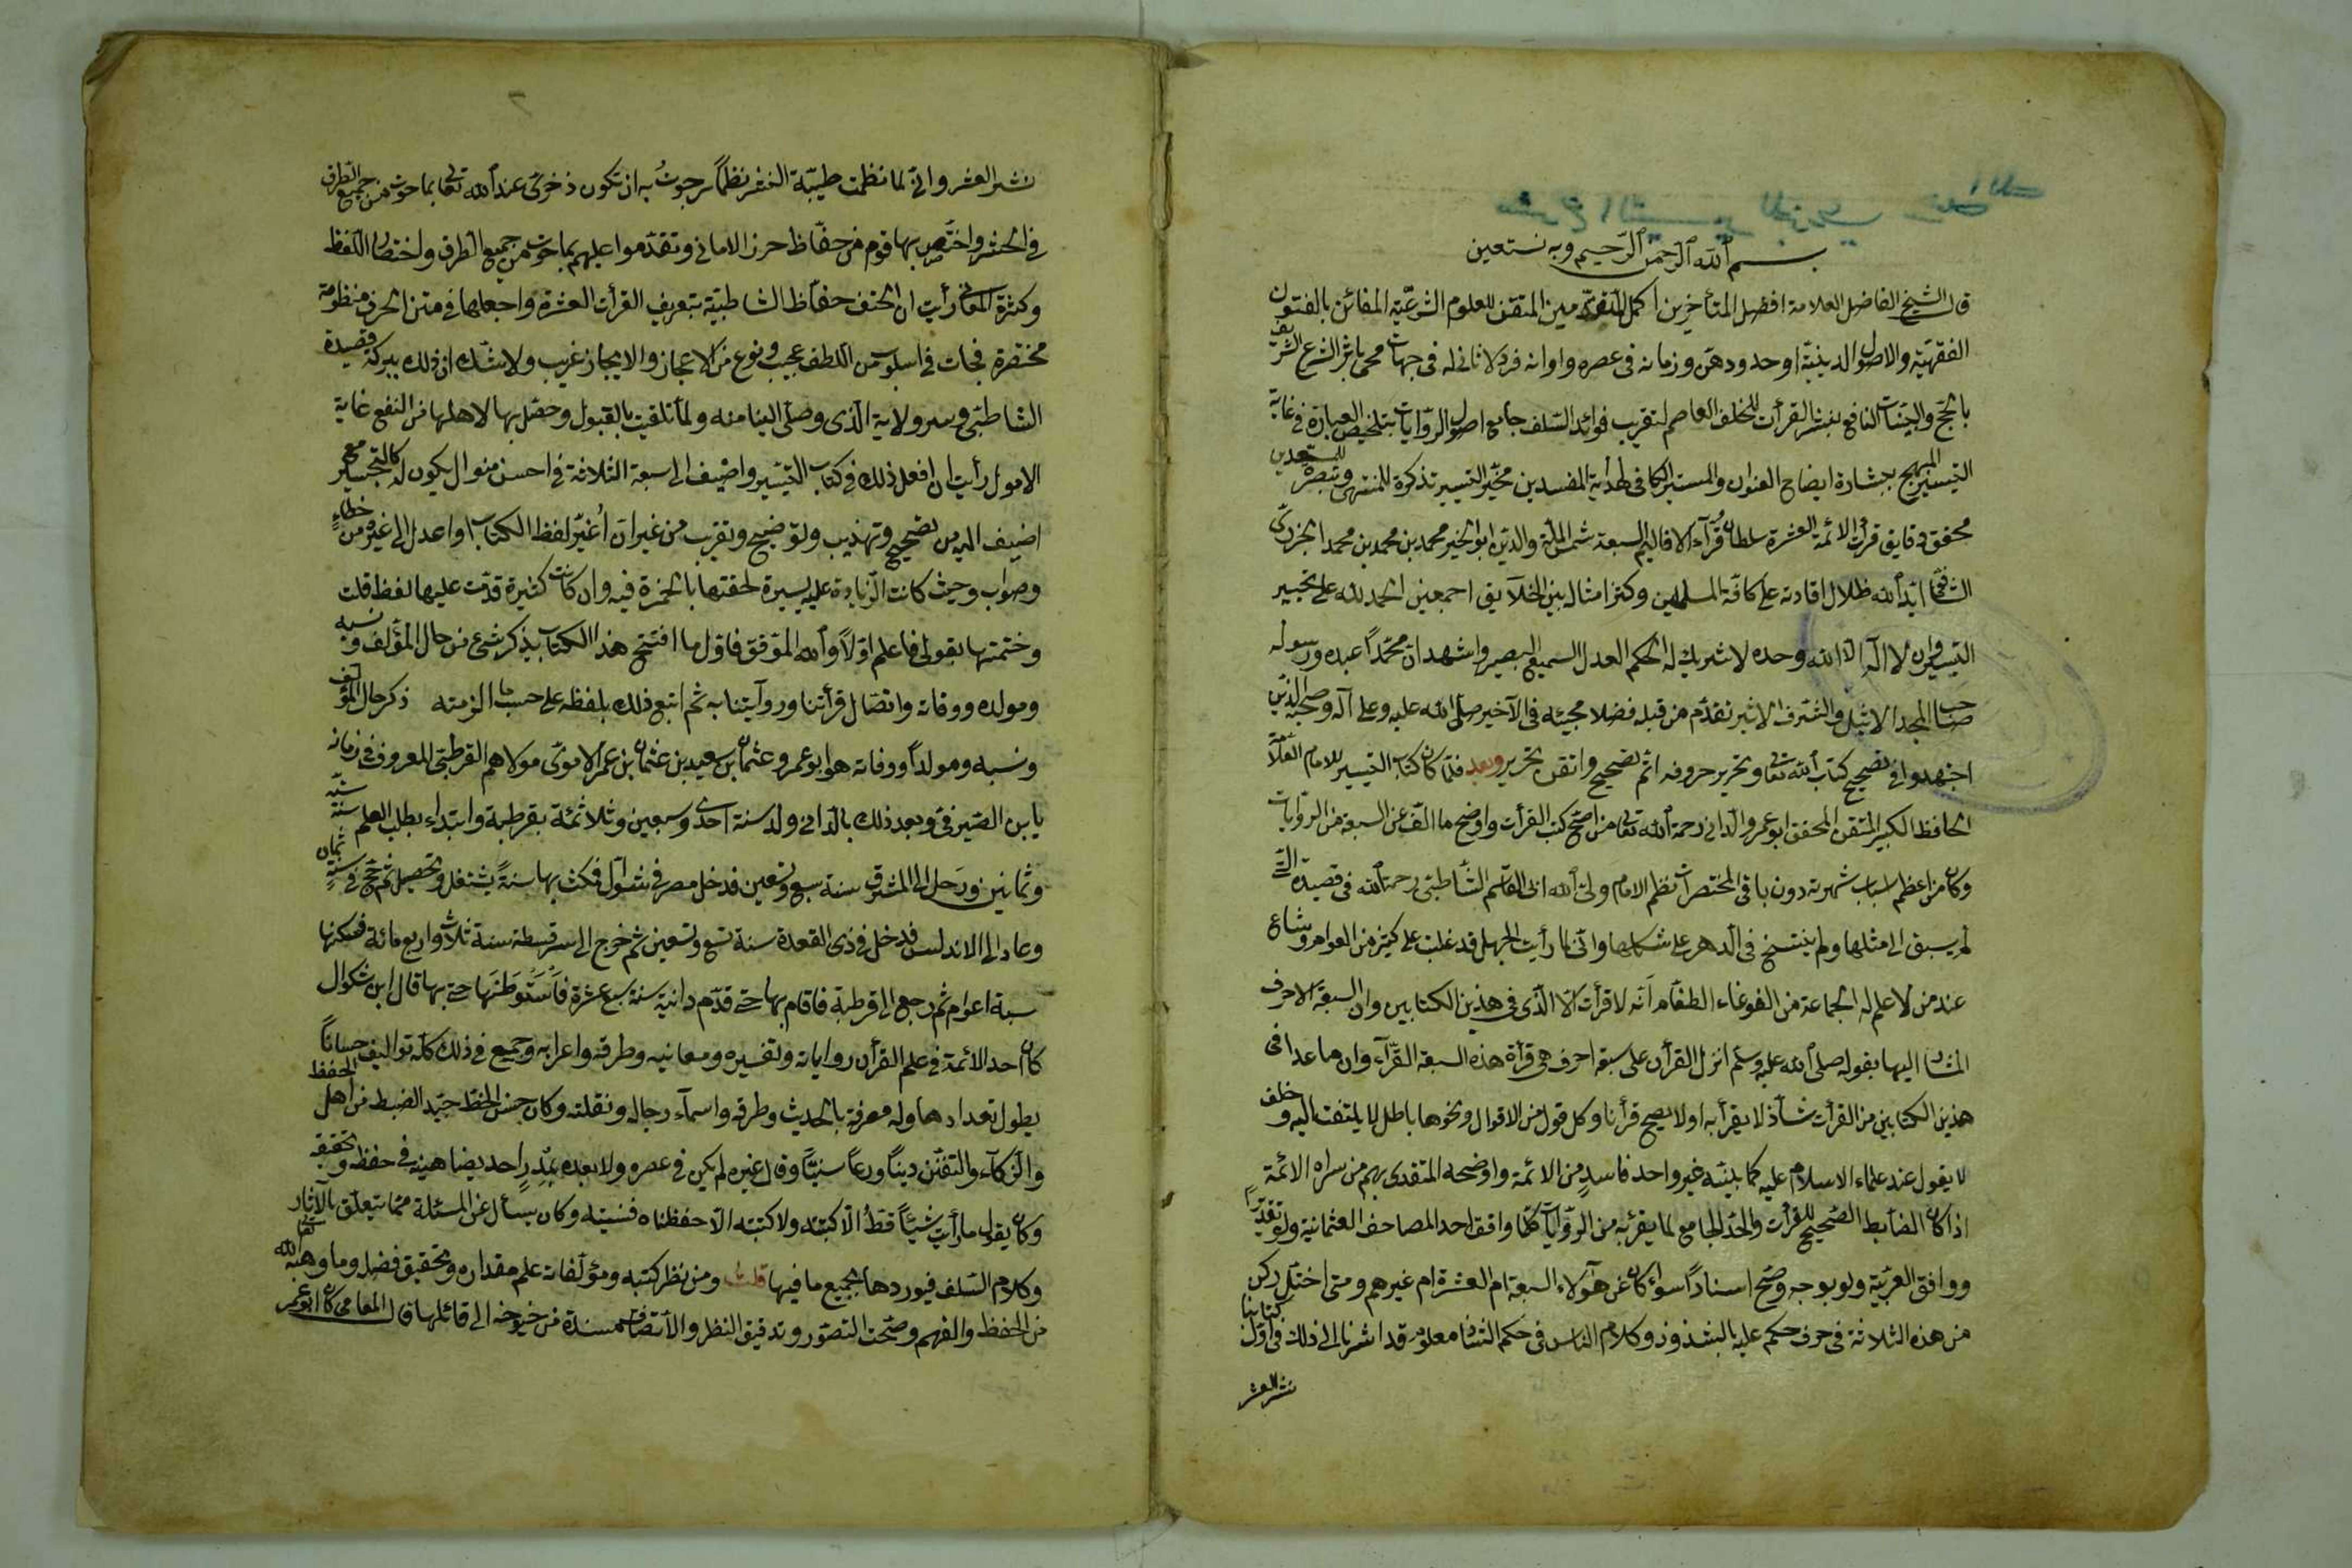 بسم الله الرحمن الرحيم وبه نستعين
قال الشيخ الفاضل العلامة افضل المتأخرين اكمل المتقدمين المتقن للعلوم الشرعية الفائز بالفنون
الفقهية والاصول الدينية اوحد دهره وزمانه في عصره واوانه فرد لا ثاني له في جهاته محي مآثر الشرع الشريف
بالحجج والبينات النافع بنشر القرأت للخلف العاصم لتقريب فوائد السلف جامع اصول الروايات بتلخيص العبارة في غاية
التيسير المبهج ببشارة ايضاح العنوان والمستنير الكافي لهداية المفسدين محبّر التيسير تذكرة للمنتهي وتبصرة للمبتدين
محقق دقايق قرأت الائمة العشرة سلطان قرآء الاقاليم السبعة شمس الملة والدين ابو الخير محمد بن محمد بن محمد الجزري
الشافعي ايد الله ظلال افادته على كافة المسلمين وكثر امثاله بين الخلآيق اجمعين الحمد لله على تحبير
التيسير وان لا اله الا الله وحده لا شريك له الحكم العدل السميع البصير واشهد ان محمداً عبده ورسوله
صاحب المجد الاثيل والشرف الاثير تقدم من قبله فضلا مجيئه في الآخير صلى الله عليه وعلى آله وصحبه الذين
اجتهدوا في تصحيح كتاب الله تعالى وتحرير حروفه اتم تصحيح واتقن تحرير وبعد فلما كان كتاب التيسير للامام العلامة
الحافظ الكبير المتقن المحقق ابو عمرو الداني رحمة الله تعالى من اصح كتب القرأت واوضح ما الف عن السبعة من الروايات
وكان من اعظم اسباب شهرته دون باقي المختصرات نظم الامام ولي الله ابي القاسم الشاطبي رحمه الله في قصيدة التي
لم يسبق الى مثلها ولم ينتسج في الدهر على شكلها واني لما رأيت الجهل قد غلب على كثير من العوام وشاع
عند من لا علم له الجماعة من الغوغاء الطغام انه لا قرأت الا الذي في هذين الكتابين وان السبعة الاحرف
المشار اليها بقوله صلى الله عليه وسلم انزل القرأن على سبعة احرف هي قرأة هذه السبعة القرآء وان ما عدا في
هذين الكتابين من القرأت شاذ لا يقرأ به او لا يصح قرأنا وكل قول من الاقوال ونحوها باطل لا يلتفت اليه وخلف
لا يقول عند علماء الاسلام عليه كما بينه غير واحد فاسد من الائمة واوضحه المتقدى بهم من سراه الائمة
اذا كان الضابط الصحيح للقرأت والحد الجامع لما يقرئ به من الروايات كلما وافق احد المصاحف العثمانية ولو تقديرا
ووافق العربية ولو بوجه وصح اسناداً سواء كان عن هؤلاء السبعة ام العشرة ام غيرهم ومتى اختل ركن
من هذه الثلاثة في حرف حكم عليه بالشذوذ وكلام الناس في حكم الشاذ معلوم قد اشرنا الى ذلك في اول كتابنا
نشر العشر
نشر العشر واني لما نظمت طيبة النشر نظماً رجوت به ان تكون ذخري عند الله تعالى بما حوت من جميع الطرق
في الحشر واختص بها قوم من حفاظ حرز الاماني وتقدموا عليهم بما حوت من جميع الطرق واختصار اللفظ
وكثرة المعاني رأيت ان اتحف حفاظ الشاطبية بتعريف القرأت العشرة واجعلها في متن الحرز منظومة
مختصرة فجات في اسلوب من اللطف عجيب ونوع من الاعجاز والايجاز غريب ولا شك ان ذلك ببركة قصيدة
الشاطبي وسر ولاية الذي وصل الينا منه ولما تلقيت بالقبول وحصل بها لاهلها من النفع غاية
الامول رأيت ان افعل ذلك في كتاب التيسير واضيف الى السبعة الثلاثة في احسن منوال يكون له كالتحبير مع
اضيف اليه من تصحيح وتهذيب وتوضيح وتقريب من غير ان أُغيّر لفظ الكتاب او اعدل الى غيره من خطاءٍ
وصواب وحيث كانت الزيادة عليه يسيرة لحقتها بالحمرة فيه وان كانت كثيرة قدّمت عليها لفظ قلت
وختمتها بقولي فاعلم اولاً والله الموفق فاول ما افتتح هذا الكتاب بذكر شئ من حال المؤلف ونسبه
ومولده ووفاته واتصال قرأتنا وروآيتنا به ثم اتبع ذلك بلفظه على حسب ما الزمته ذكر حال المؤلف
ونسبه ومولداً ووفاته هو ابو عمرو عثمان بن سعيد بن عثمان بن عمر الاموي مولاهم القرطبي المعروف في زمانه
يابن الصيرفي وبعد ذلك بالداني ولد سنة احدى وسبعين وثلاثمئة بقرطبة وابتداء بطلب العلم سنة ستة
وثمانين ورحل الى المشرق سنة سبع وتسعين فدخل مصر في شوال فمكث بها سنةً يشتغل وتحصيل ثم حج في سنةٍ ثمان
وعاد الى الاندلس فدخل في ذي القعدة سنة تسع وتسعين ثم خرج الى سرقسطة سنة ثلاث واربع مائة فسكنها
سبعة اعوام ثم رجع الى قرطبة فاقام بها حتى قدم دانية سنة سبع عشرة فأستوطنها حتى بها قال ابن بشكوال
كان احد الائمة في علم القرأن رواياته وتفسيره ومعانيه وطرقه واعرابه وجميع في ذلك كله تواليف حساناً
يطول تعدادها وله معرفة بالحديث وطرقه واسمآء رجاله ونقلته وكان حسن الخط جيد الضبط من اهل الحفظ
والزكآء والتفنن ديناً ورعاً سنيّاً وقال غيره لم يكن في عصره ولا بعده احد يضاهينه في حفظه وتحقيقه
وكان يقول ما رأيت شيئاً قط الا كبتته ولا كتبته الا حفظناه فنسيته وكان يسأل عن المسئلة مما يتعلق بالآثار
وكلام السلف فيوردها بجميع ما فيها قلت ومن نظر كتبه ومؤلفاته علم مقداره وتحقيق فضله وما وهبه الله تعالى
من الحفظ والفهم وصحت التصور وتدقيق النظر والاتصاف مسندة من شيوخه الى قائلها قال المغامي كان ابو عمر